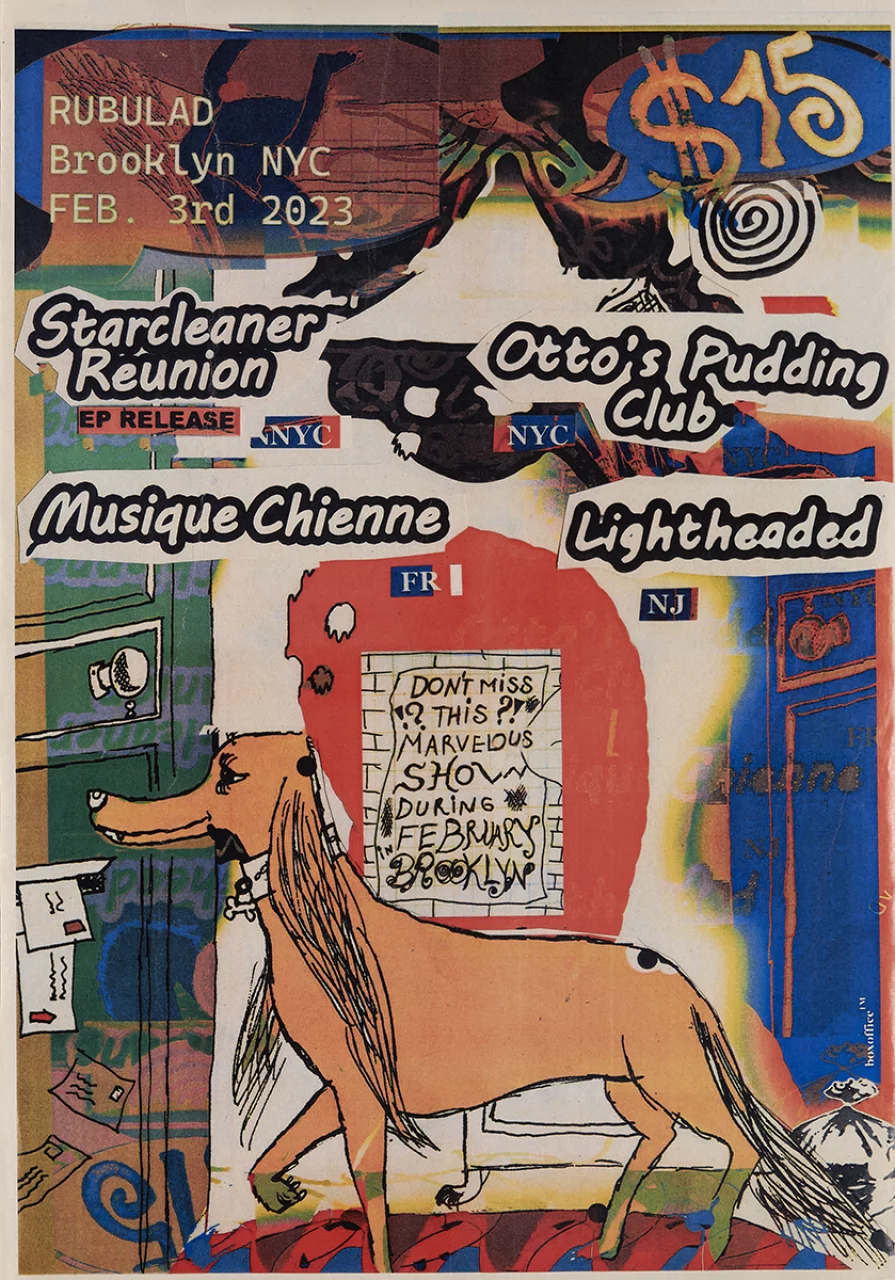 RUBULAD
Brooklyn NYC
FEB. 3rd 2023
$15
Starcleaner
Reunion
EP RELEASE
NYC
Otto's Pudding
Club
NYC
Musique Chienne
FR
Lightheaded
NJ
DON'T MISS
? THIS ?!
MARVELOUS
SHOW
DURING
FEBRUARY
IN
BROOKLYN
boxoffice™